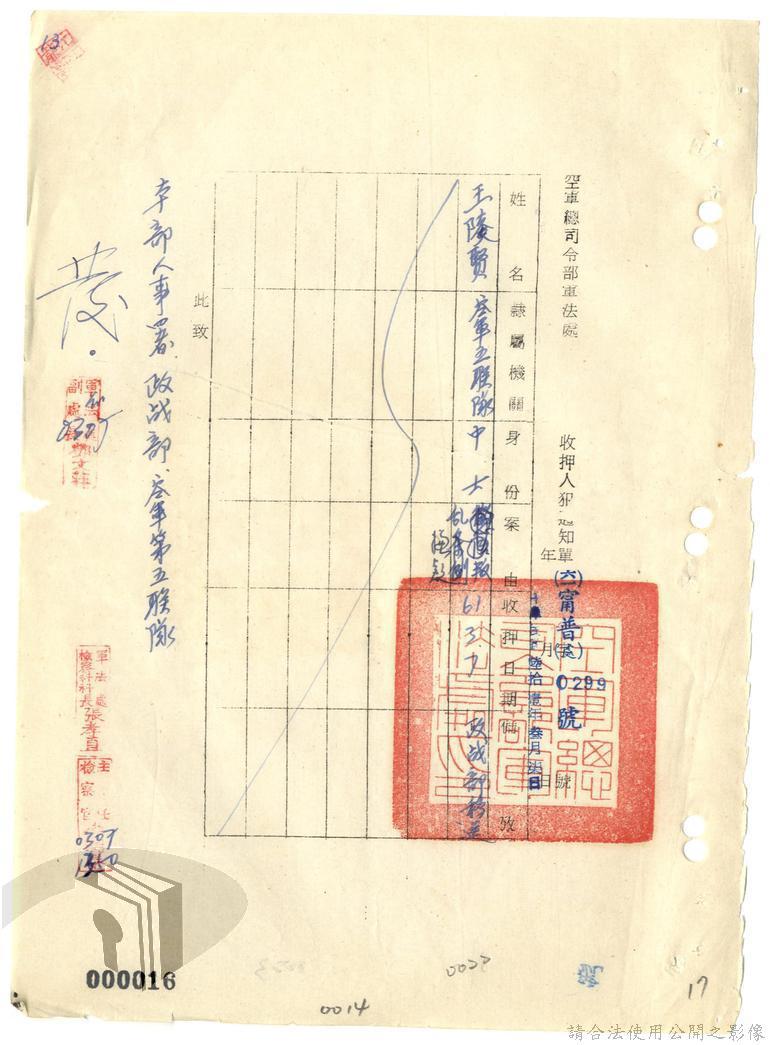 空軍總司令部軍法處
收押人犯通知單
(六一)甯普 0299 號
年 月 日 號
姓名
隸屬機關
身份
案由
收押日期
備攷
王陵賢
空軍五聯隊
中士
亂條例
61.3.7
政战部移送
此致
本部人事署、政战部、空軍第五聯隊
發.
副處長
軍法處
檢察科科長張孝直
主任
檢察官
0307
1350
13
000016
0014
0022
17
請合法使用公開之影像